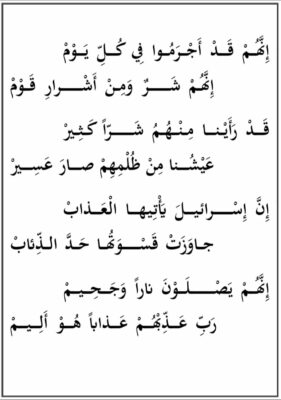 إِنَّهُمْ قَدْ أَجْرَمُوا فِي كُلِّ يَوْمْ
إِنَّهُمْ شَرٌ وَمِنْ أَشْرارِ قَوْمْ
قَدْ رَأَيْنا مِنْهُمُ شَرّاً كَثِيرْ
عَيْشُنا مِنْ ظُلْمِهِمْ صارَ عَسِيرْ
إِنَّ إِسْرائيلَ يَأْتِيها الْعَذابْ
جاوَزَتْ قَسْوَتُها حَدَّ الذِّئابْ
إِنَّهُمْ يَصْلَوْنَ ناراً وَجَحِيمْ
رَبِّ عَذِّبْهُمْ عَذاباً هُوْ أَلِيمْ